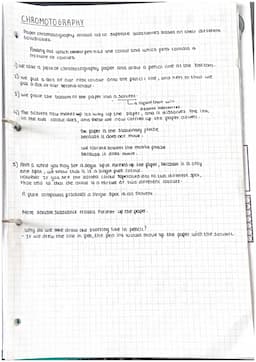 CHROMOTOGRAPHY
Paper chromatography allows us to separate substances based on their different
solubilities.
Finding out which dyes make up the colour and which pens contain a
mixture of colours.
1) We take a piece of chromatography paper and draw a pencil line at the bottom.
2) We put a dot of our first colour onto the pencil line, and next to that we
put a dot of our second colour.
3) We place the bottom of the paper into a solvent.
a liquid that will
dissolve substances
4) The solvent now makes its way up the paper, and it dissolves the ink
in the two colour dots, and these are now carried up the paper
the paper is the stationary phase
because it does not move.
we call the solvent the mobile phase
because it does move.
5) Point A
one spot, we know that it is a single pure colour.
However
this tells us that the colour is a mixture of two different colours.
A pure compound produces a single spot in all solvents.
More soluble substance travels further up the paper.
Why do we draw our starting line in pencil?
- If we drew the line in pen, the pen ink would move up the paper with the solvent.